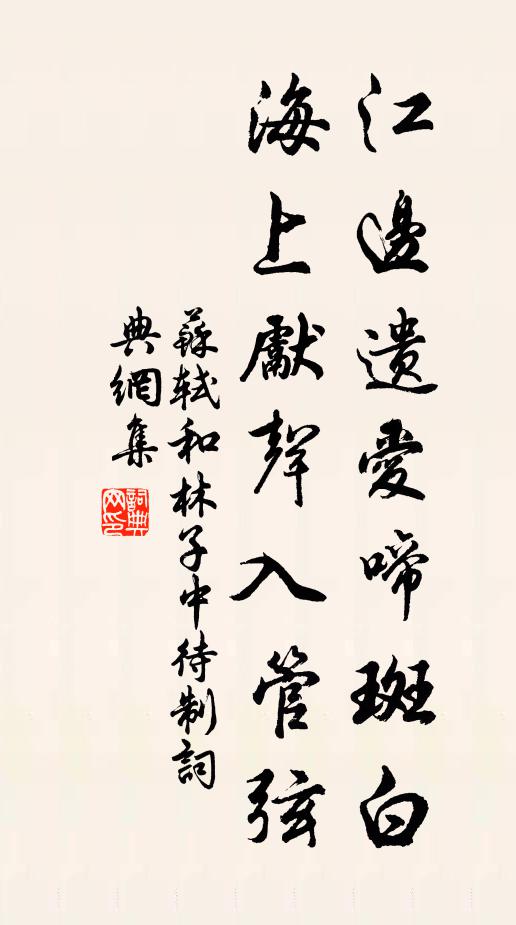 江邊遺愛啼斑白
海上獻聲入管弦
蘇軾和林子中待制詞
典網集
詞典網印